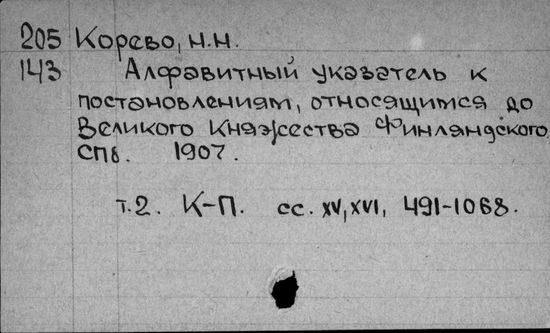 205 Корево, Н.Н.
143 Алфавитный указатель к
постановлениям, относящимся до
Великого Княжества Финляндского
СПб. 1907.
т.2. К-П. сс. XV, XVI, 491-1068.